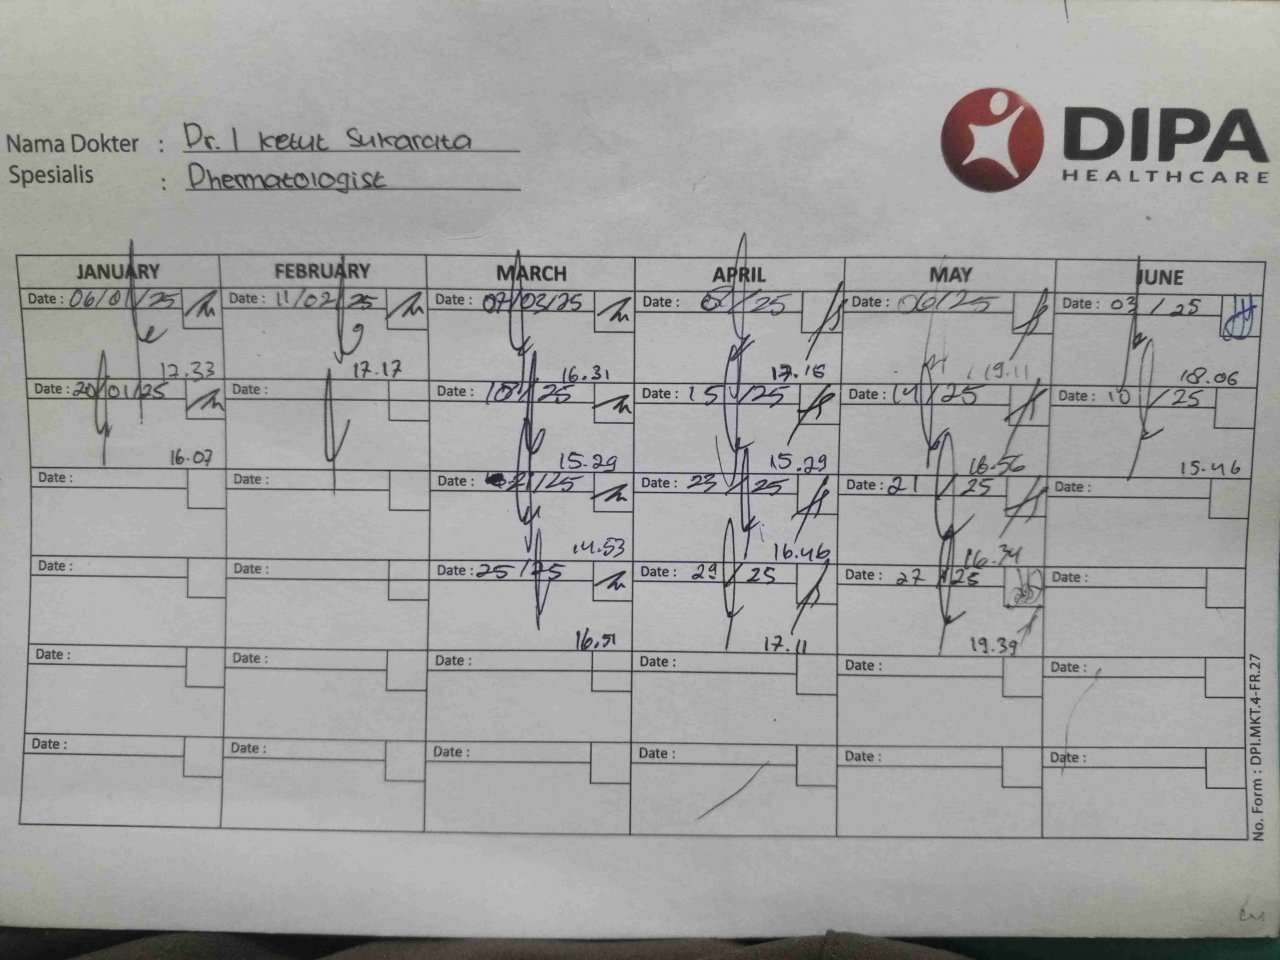 DIPA
HEALTHCARE
Nama Dokter : Dr. I Ketut Sukarata
Spesialis : Dhermatologist
JANUARY FEBRUARY MARCH APRIL MAY JUNE
Date : 06/01/25 Date : 11/02/25 Date : 07/03/25 Date : /25 Date : 06/25 Date : 03/25
17.33 17.17 16.31 17.16 19.11 18.06
Date : 20/01/25 Date : Date : 18/25 Date : 15/25 Date : 14/25 Date : 10/25
16.07 15.29 15.29 16.56 15.46
Date : Date : Date : 21/25 Date : 23/25 Date : 21/25 Date :
14.53 16.46 16.34
Date : Date : Date : 25/25 Date : 29/25 Date : 27/25 Date :
16.51 17.11 19.39
Date : Date : Date : Date : Date : Date :
Date : Date : Date : Date : Date : Date :
No. Form : DPI.MKT.4-FR.27